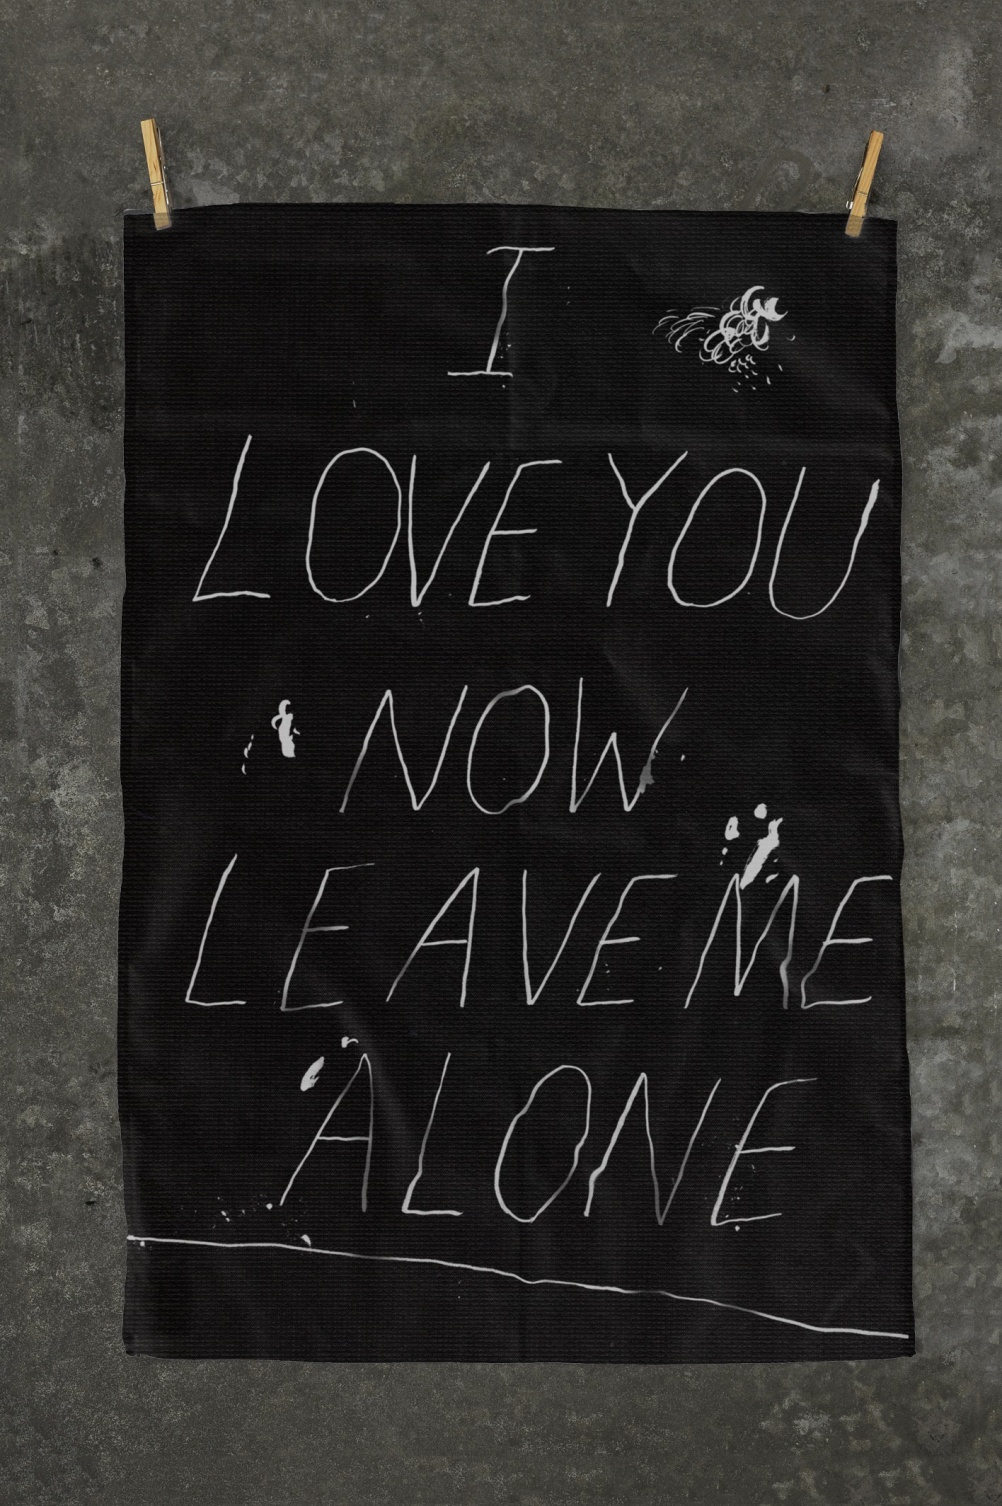 I
LOVE YOU
NOW
LEAVE ME
ALONE